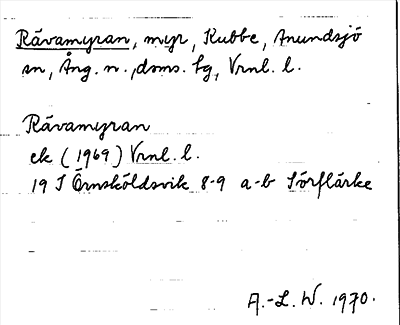 Rävamyran, myr, Kubbe, Anundsjö
sn, Ång. n., dsms. tg, Vrnl. l.
Rävamyran
ek (1969) Vrnl. l.
19 I Örnsköldsvik 8-9 a-b Sörflärke
A.-L. W. 1970.